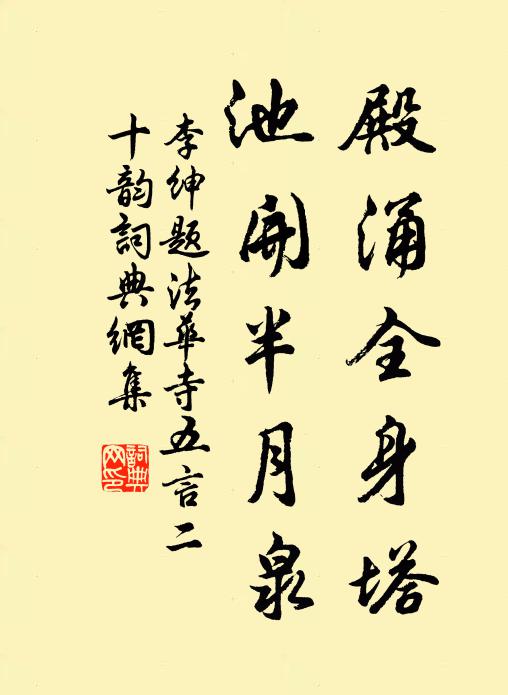 殿涌全身塔
池開半月泉
李紳題法華寺五言二
十韵詞典網集
詞典
网印